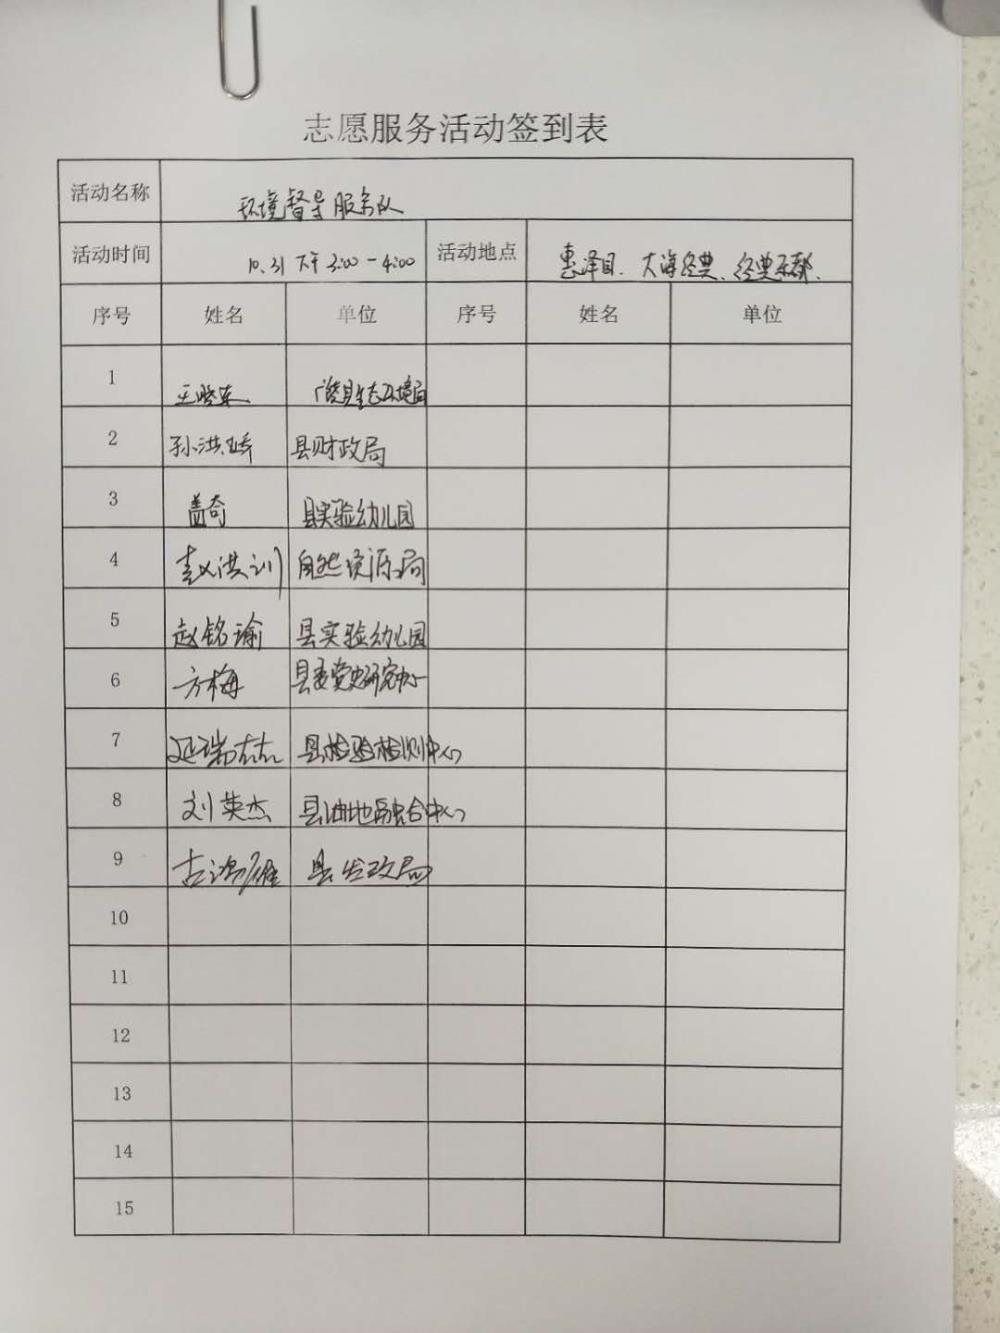 志愿服务活动签到表
活动名称 环境督导服务队
活动时间 10.31 下午 3:00-4:00 活动地点 惠泽园、大海经典、经典东郡.
序号 姓名 单位 序号 姓名 单位
1 王晓东 县生态环境局
2 孙洪 县财政局
3 盖奇 县实验幼儿园
4 赵洪训 自然资源局
5 赵铭瑜 县实验幼儿园
6 方梅 县委党史研究中心
7 延瑞杰 县检验检测中心
8 刘英杰 县油地融合中心
9 古鸿雁 县发改局
10
11
12
13
14
15